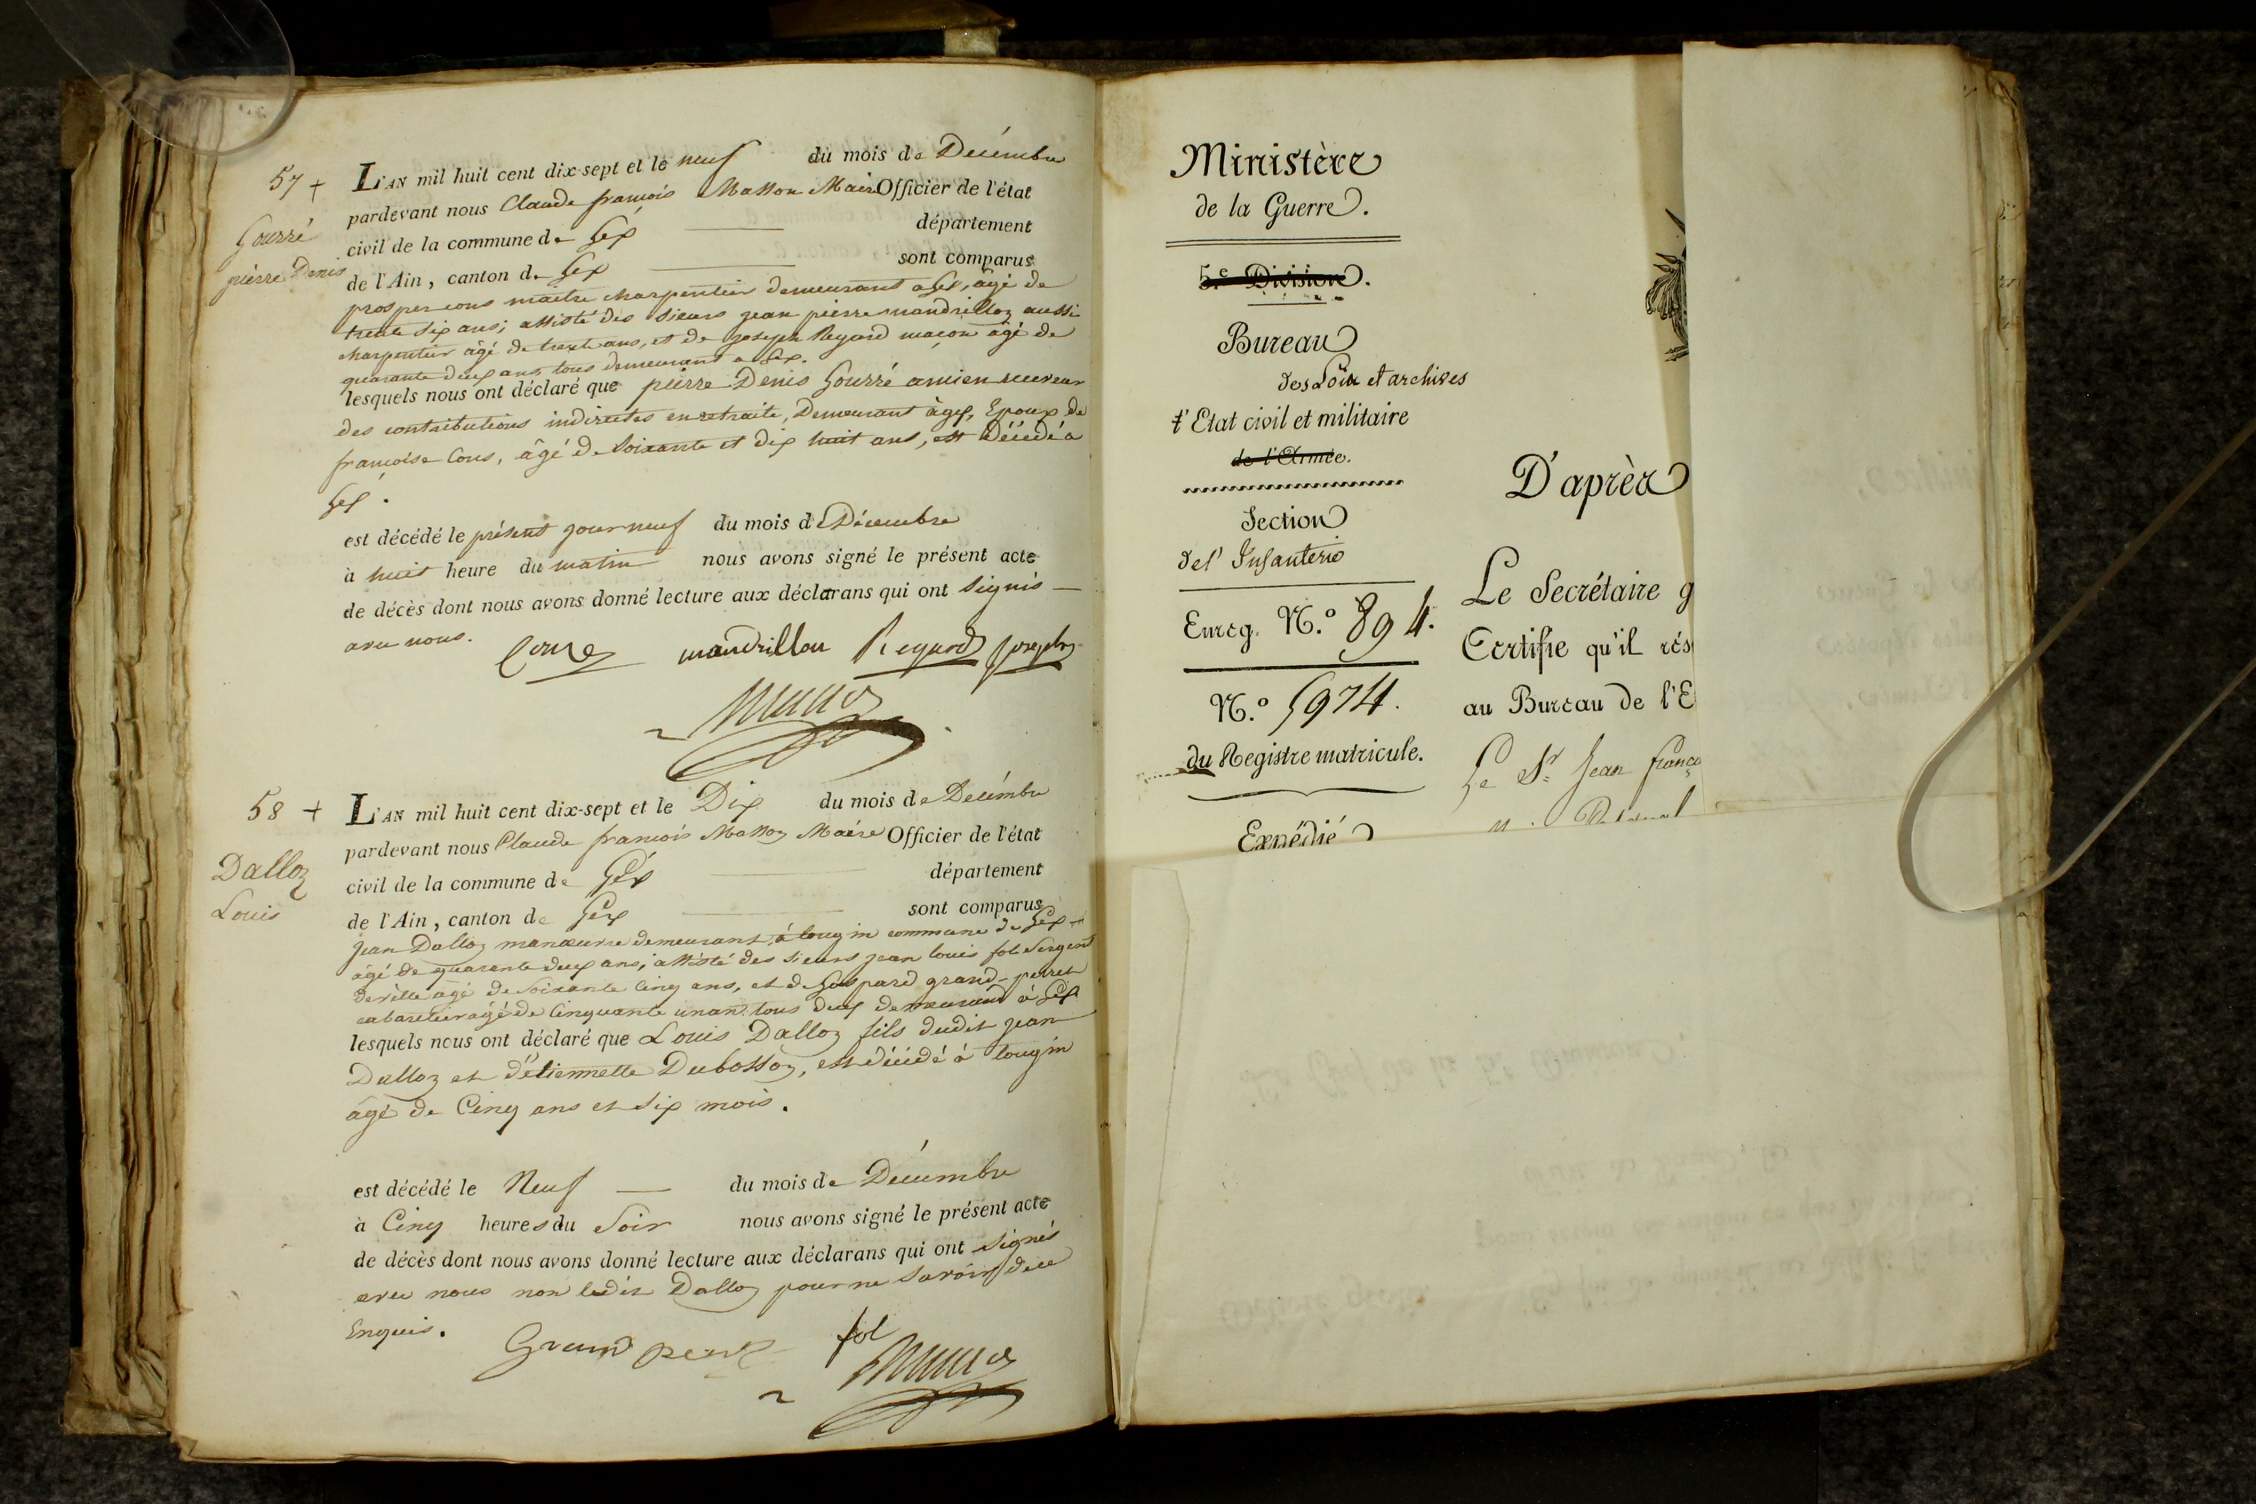 57 +
Gourré
pierre Denis
L'AN mil huit cent dix-sept et le neuf du mois de Décembre
pardevant nous Claude françois Masson Maire Officier de l'état
civil de la commune de Gex département
de l'Ain, canton de Gex sont comparus
prosper cons maitre charpentier demeurant a Gex, âgé de
trente six ans; assisté des sieurs jean pierre mandrilloz aussi
charpentier âgé de trente ans, et de joseph Regard maçon âgé de
quarante deux ans tous demeurant a Gex.
lesquels nous ont déclaré que pierre Denis Gourré ancien receveur
des contributions indirectes en retraite, Demeurant à gex, Epoux de
françoise Cons, âgé de Soixante et dix huit ans, est Décédé a
Gex.
est décédé le présent jour neuf du mois de Décembre
à huit heure du matin nous avons signé le présent acte
de décès dont nous avons donné lecture aux déclarans qui ont signés
avec nous.
Cons mandrillon Regard joseph
58 +
Dalloz
Louis
L'AN mil huit cent dix-sept et le Dix du mois de Decémbre
pardevant nous Claude françois Massoz Maire Officier de l'état
civil de la commune de Gex département
de l'Ain, canton de Gex sont comparus
Jean Dalloz manœuvre demeurant à tougin commune de Gex
âgé de quarante deux ans; assisté des sieurs jean louis fol Sergent
de ville âgé de soixante cinq ans, et de Gaspard grand-perret
cabaretier âgé de Cinquante un an tous deux demeurant à Gex
lesquels nous ont déclaré que Louis Dalloz fils dudit jean
Dalloz et d'étiennette Dubossoz, est décédé à tougin
âgé de Cinq ans et six mois.
est décédé le Neuf du mois de Décembre
à Cinq heures du Soir nous avons signé le présent acte
de décès dont nous avons donné lecture aux déclarans qui ont signés
avec nous non ledit Dalloz pour ne savoir de ce
Enquis.
Grand perret fol
Ministère
de la Guerre.
5.e Division.
Bureau
des Loix et archives
l'Etat civil et militaire
de l'Armée.
Section
de l'Infanterie
Enreg. N.º 894.
N.º 5974.
du Registre matricule.
Expédié
D'après
Le Secrétaire g
Certifie qu'il rés
au Bureau de l'E
Le Sr. Jean franço